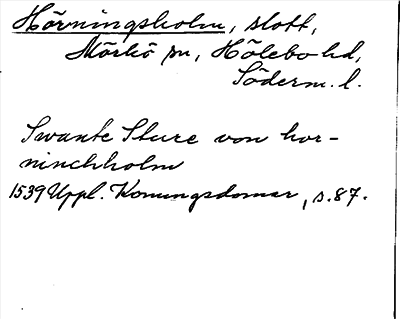 Hörningsholm, slott,
Mörkö sn, Hölebo hd,
Söderm. l.
Swante Sture von hor-
ninchholm
1539 Uppl. Konungsdomar, s. 87.